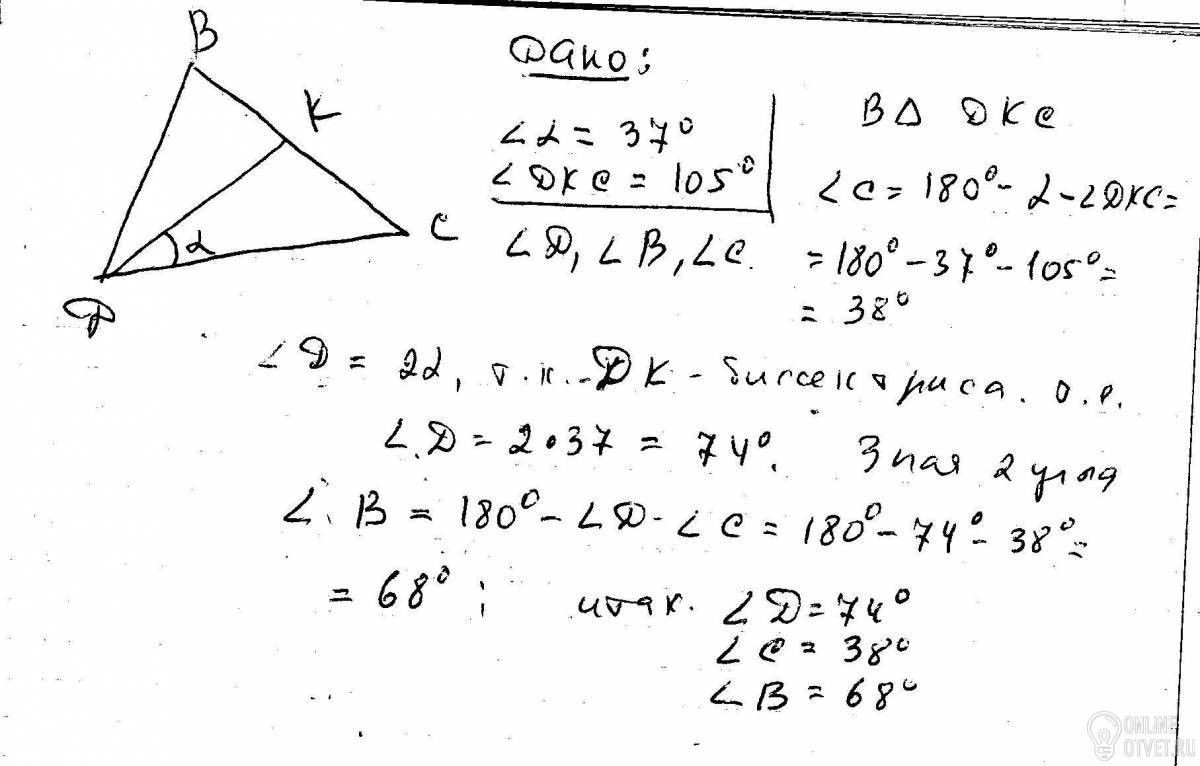 B
K
C
D
α
Дано:
∠α = 37°
∠DKC = 105°
∠D, ∠B, ∠C.
В Δ DKC
∠C = 180° - α - ∠DKC =
= 180° - 37° - 105° =
= 38°
∠D = 2α, т.к. DK - биссектриса. т.е.
∠D = 2•37 = 74°. Зная 2 угла
∠B = 180° - ∠D - ∠C = 180° - 74° - 38° =
= 68°; итак. ∠D = 74°
∠C = 38°
∠B = 68°
ONLINE
OTVET.RU